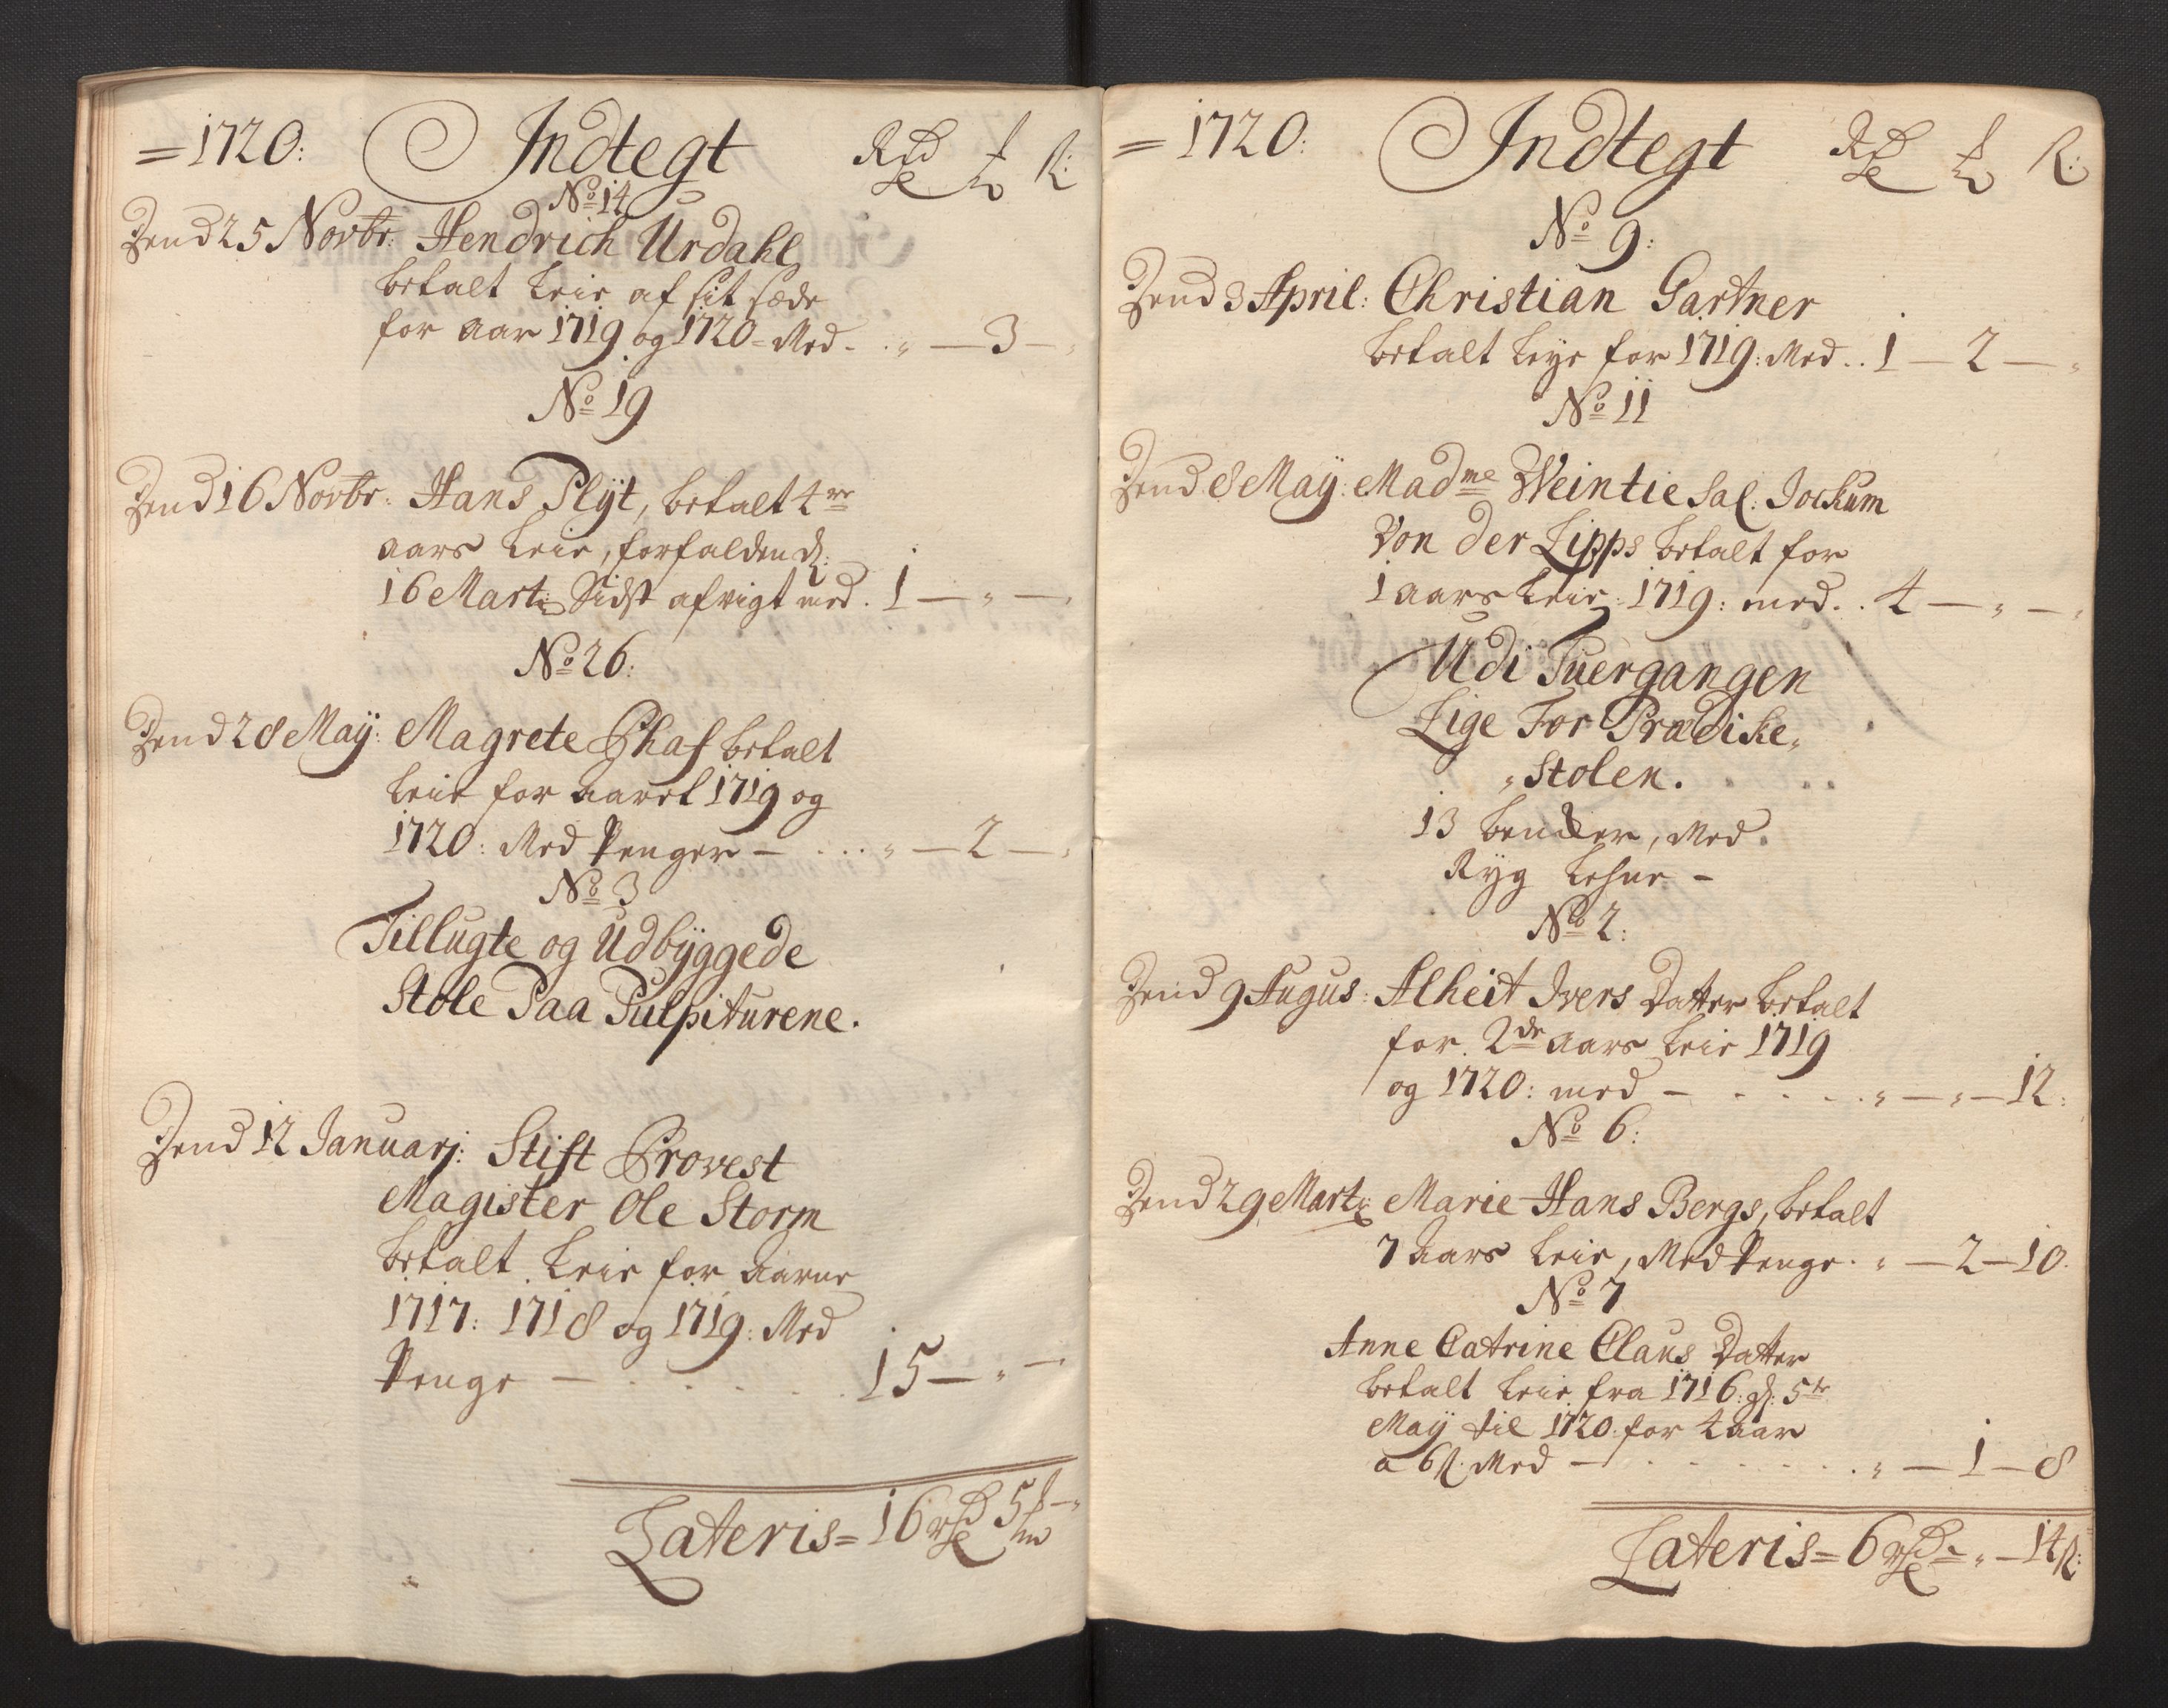 =1720: Indtegt Rd ℳ ß:
No 14
Dend 25 Novbr: Hendrich Urdahl
betalt leie af sit sæde
for aar 1719 og 1720 = Med - . „ — 3 — „
No 19
Dend 16 Novbr: Hans Plÿt, betalt 4re
aars leie, forfalden d:
16 Marti Sidst afvigt med . 1 — „ — „
No 26:
Dend 28 Maÿ: Magrete Schaf betalt
leie for aaret 1719 og
1720: Med Penger — . . . „ — 2 — „
No 3
Tillugte og Udbÿggede
Stole Paa Pulpiturene.
Dend 12 Januarj: Stift Provest
Magister Ole Storm
betalt leie for aarne
1717: 1718 og 1719: Med
Penge — . . . . . . 15 — „ —
Lateris = 16 rd 5 ℳ — „
= 1720: Indtegt Rd ℳ ß:
No 9:
Dend 3 April: Christian Gartner
betalt leye for 1719: Med . . 1 — 2 — „
No 11
Dend 8 Maÿ: Madme Weintie Sal: Jockum
Von der Lipps betalt for
1 aars leie: 1719: med . . 4 — „ — „
Udi Tuergangen
Lige For Prædike„
„Stolen.
13 bencker, Med
Ryg lehne —
No 2:
Dend 9 Augus: Alheit Ivers Datter betalt
for 2de aars leie 1719
og 1720: med — . . . . „ — „ — 12:
No 6:
Dend 29 Marti: Marie Hans Bergs, betalt
7 aars leie, Med Penge . „ — 2 — 10.
No 7
Anne Catrine Claus Datter
betalt leie fra 1716: d: 5te
Maÿ til 1720: for 4 aar
a 6 ß: Med — . . . . . . . „ — 1 — 8
Lateris = 6 rd = „ — 14 ß: